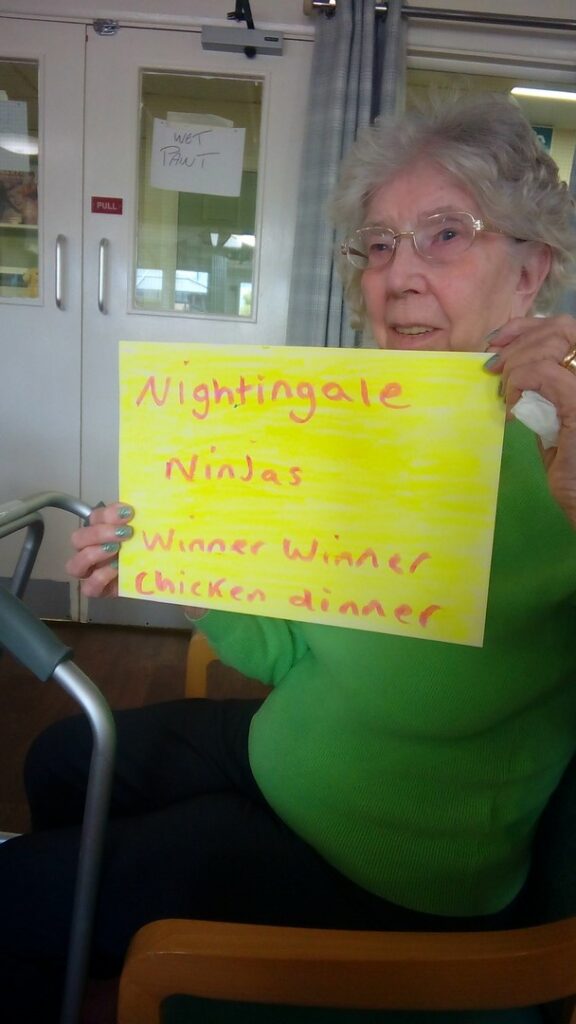 WET
PAINT
PULL
Nightingale
Ninjas
Winner Winner
Chicken dinner